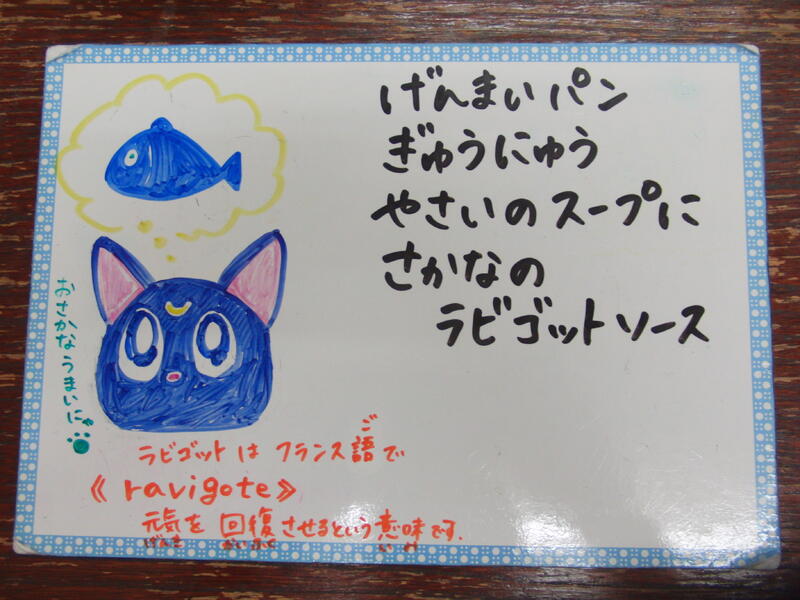 げんまいパン
ぎゅうにゅう
やさいのスープに
さかなの
ラビゴットソース
おさかなうまいにゃ
ご
ラビゴットは フランス語で
《ravigote》
元気を 回復させるという意味です.
げんき かいふく いみ